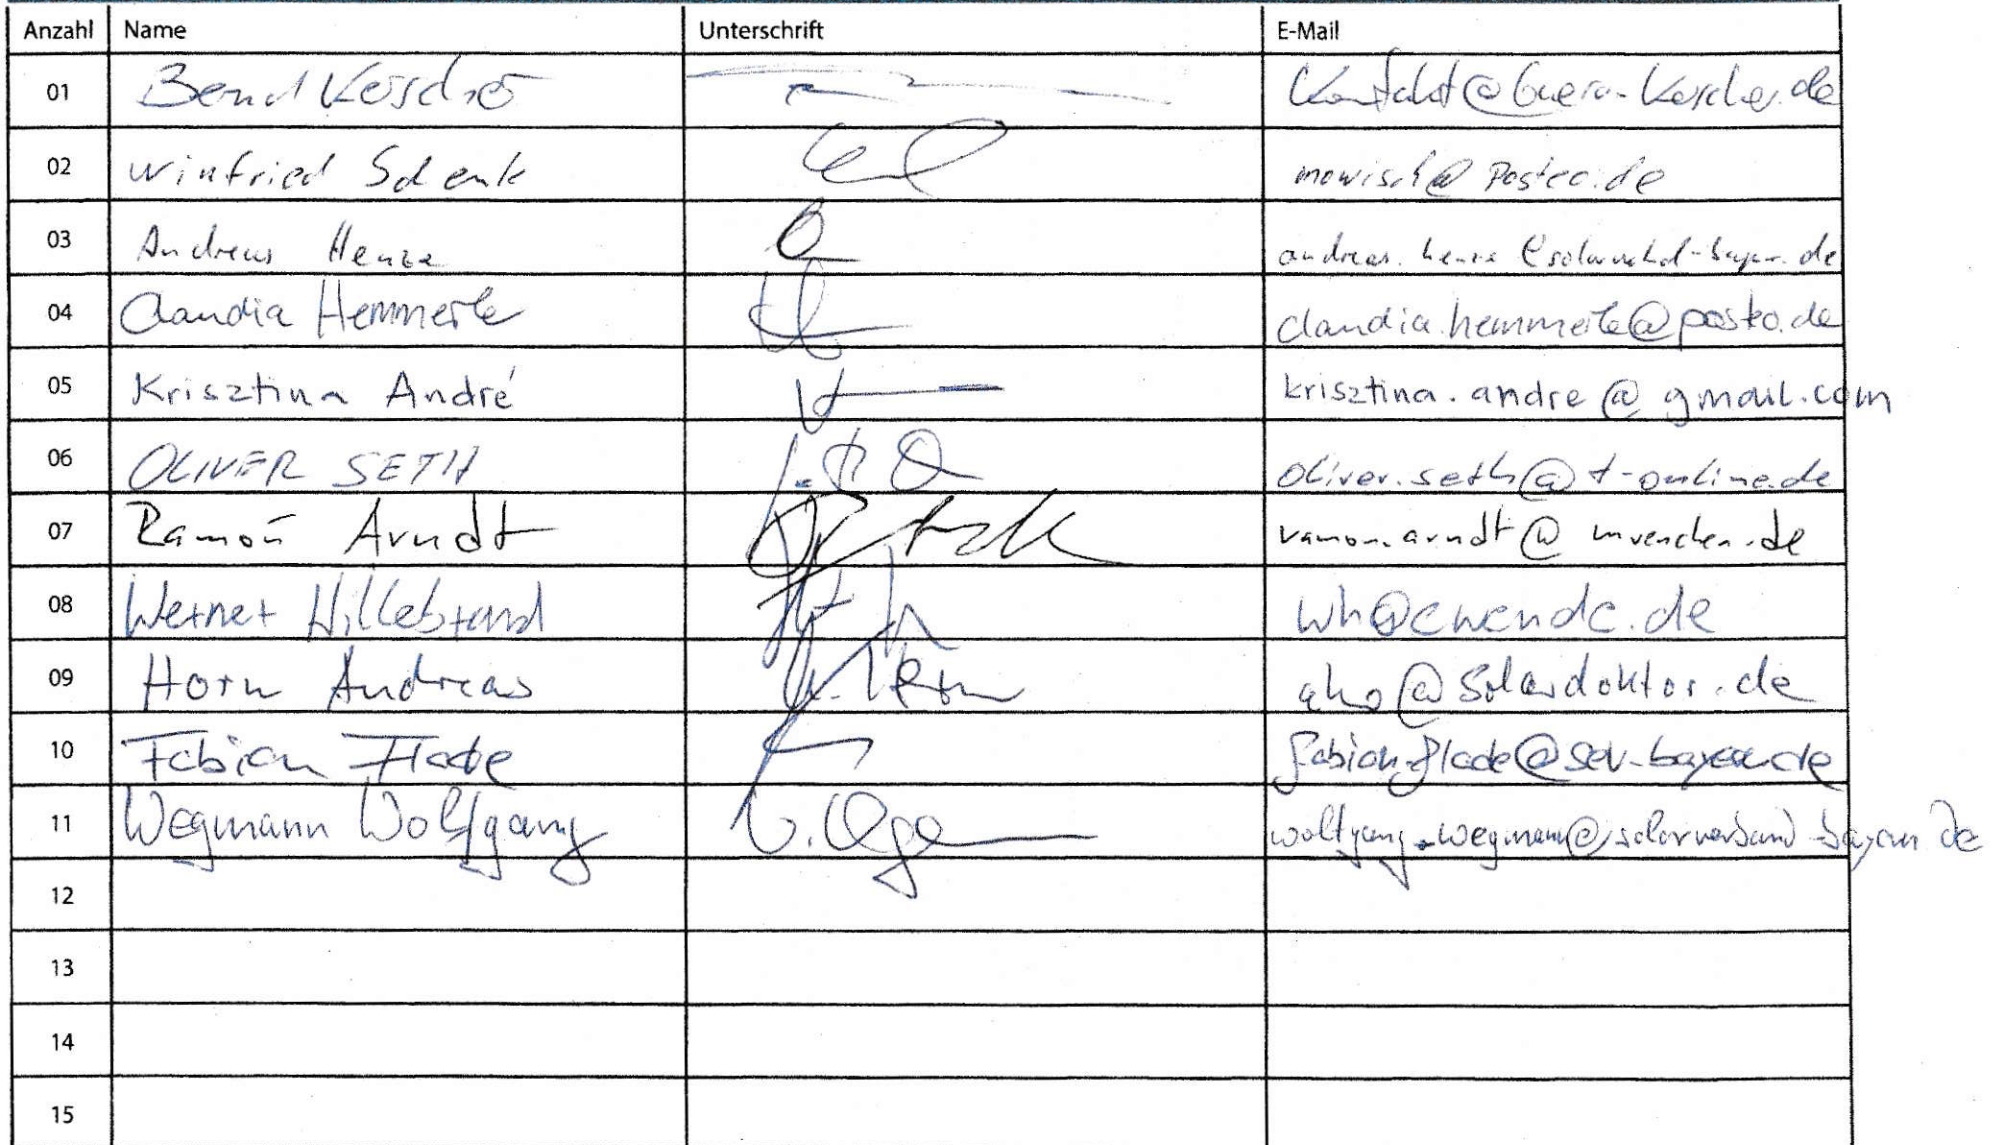 Anzahl Name Unterschrift E-Mail
01 Bernd
02 Winfried Schenk mowisch@posteo.de
03 Andreas Henze
04 Claudia Hemmerle claudia.hemmerle@posteo.de
05 Krisztina André krisztina.andre@gmail.com
06 OLIVER SETH oliver.seth@t-online.de
07 Ramón Arndt ramon.arndt@muenchen.de
08 Werner Hillebrand wh@ewende.de
09 Horn Andreas aho@solardoktor.de
10 Fabian Flade fabian.flade@sev-bayern.de
11 Wegmann Wolfgang wolfgang.wegmann@solarverband-bayern.de
12
13
14
15